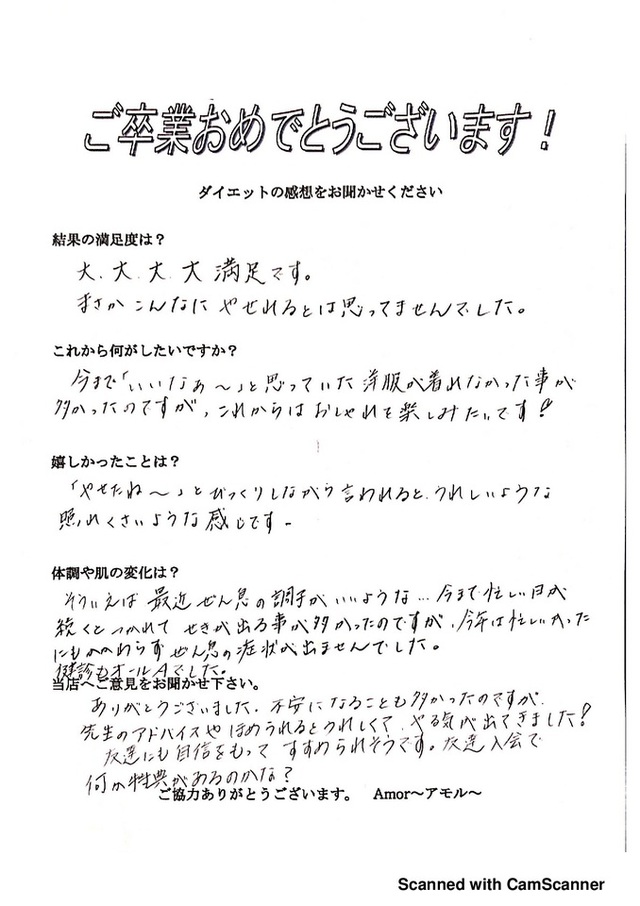 ご卒業おめでとうございます！
ダイエットの感想をお聞かせください
結果の満足度は？
大、大、大、大満足です。
まさかこんなにやせれるとは思ってませんでした。
これから何がしたいですか？
今まで「いいなぁ〜」と思っていた洋服が着れなかった事が
多かったのですが、これからはおしゃれを楽しみたいです！
嬉しかったことは？
「やせたね〜」とびっくりしながら言われると、うれしいような
照れくさいような感じです。
体調や肌の変化は？
そういえば最近ぜん息の調子がいいような…今まで忙しい日が
続くとつかれてせきが出る事が多かったのですが、今年は忙しかった
にもかかわらずぜん息の症状が出ませんでした。
健診もオールAでした。
当店へご意見をお聞かせ下さい。
ありがとうございました。不安になることも多かったのですが、
先生のアドバイスやほめられるとうれしくて、やる気が出てきました！
友達にも自信をもってすすめられそうです。友達入会で
何か特典があるのかな？
ご協力ありがとうございます。 Amor〜アモル〜
Scanned with CamScanner